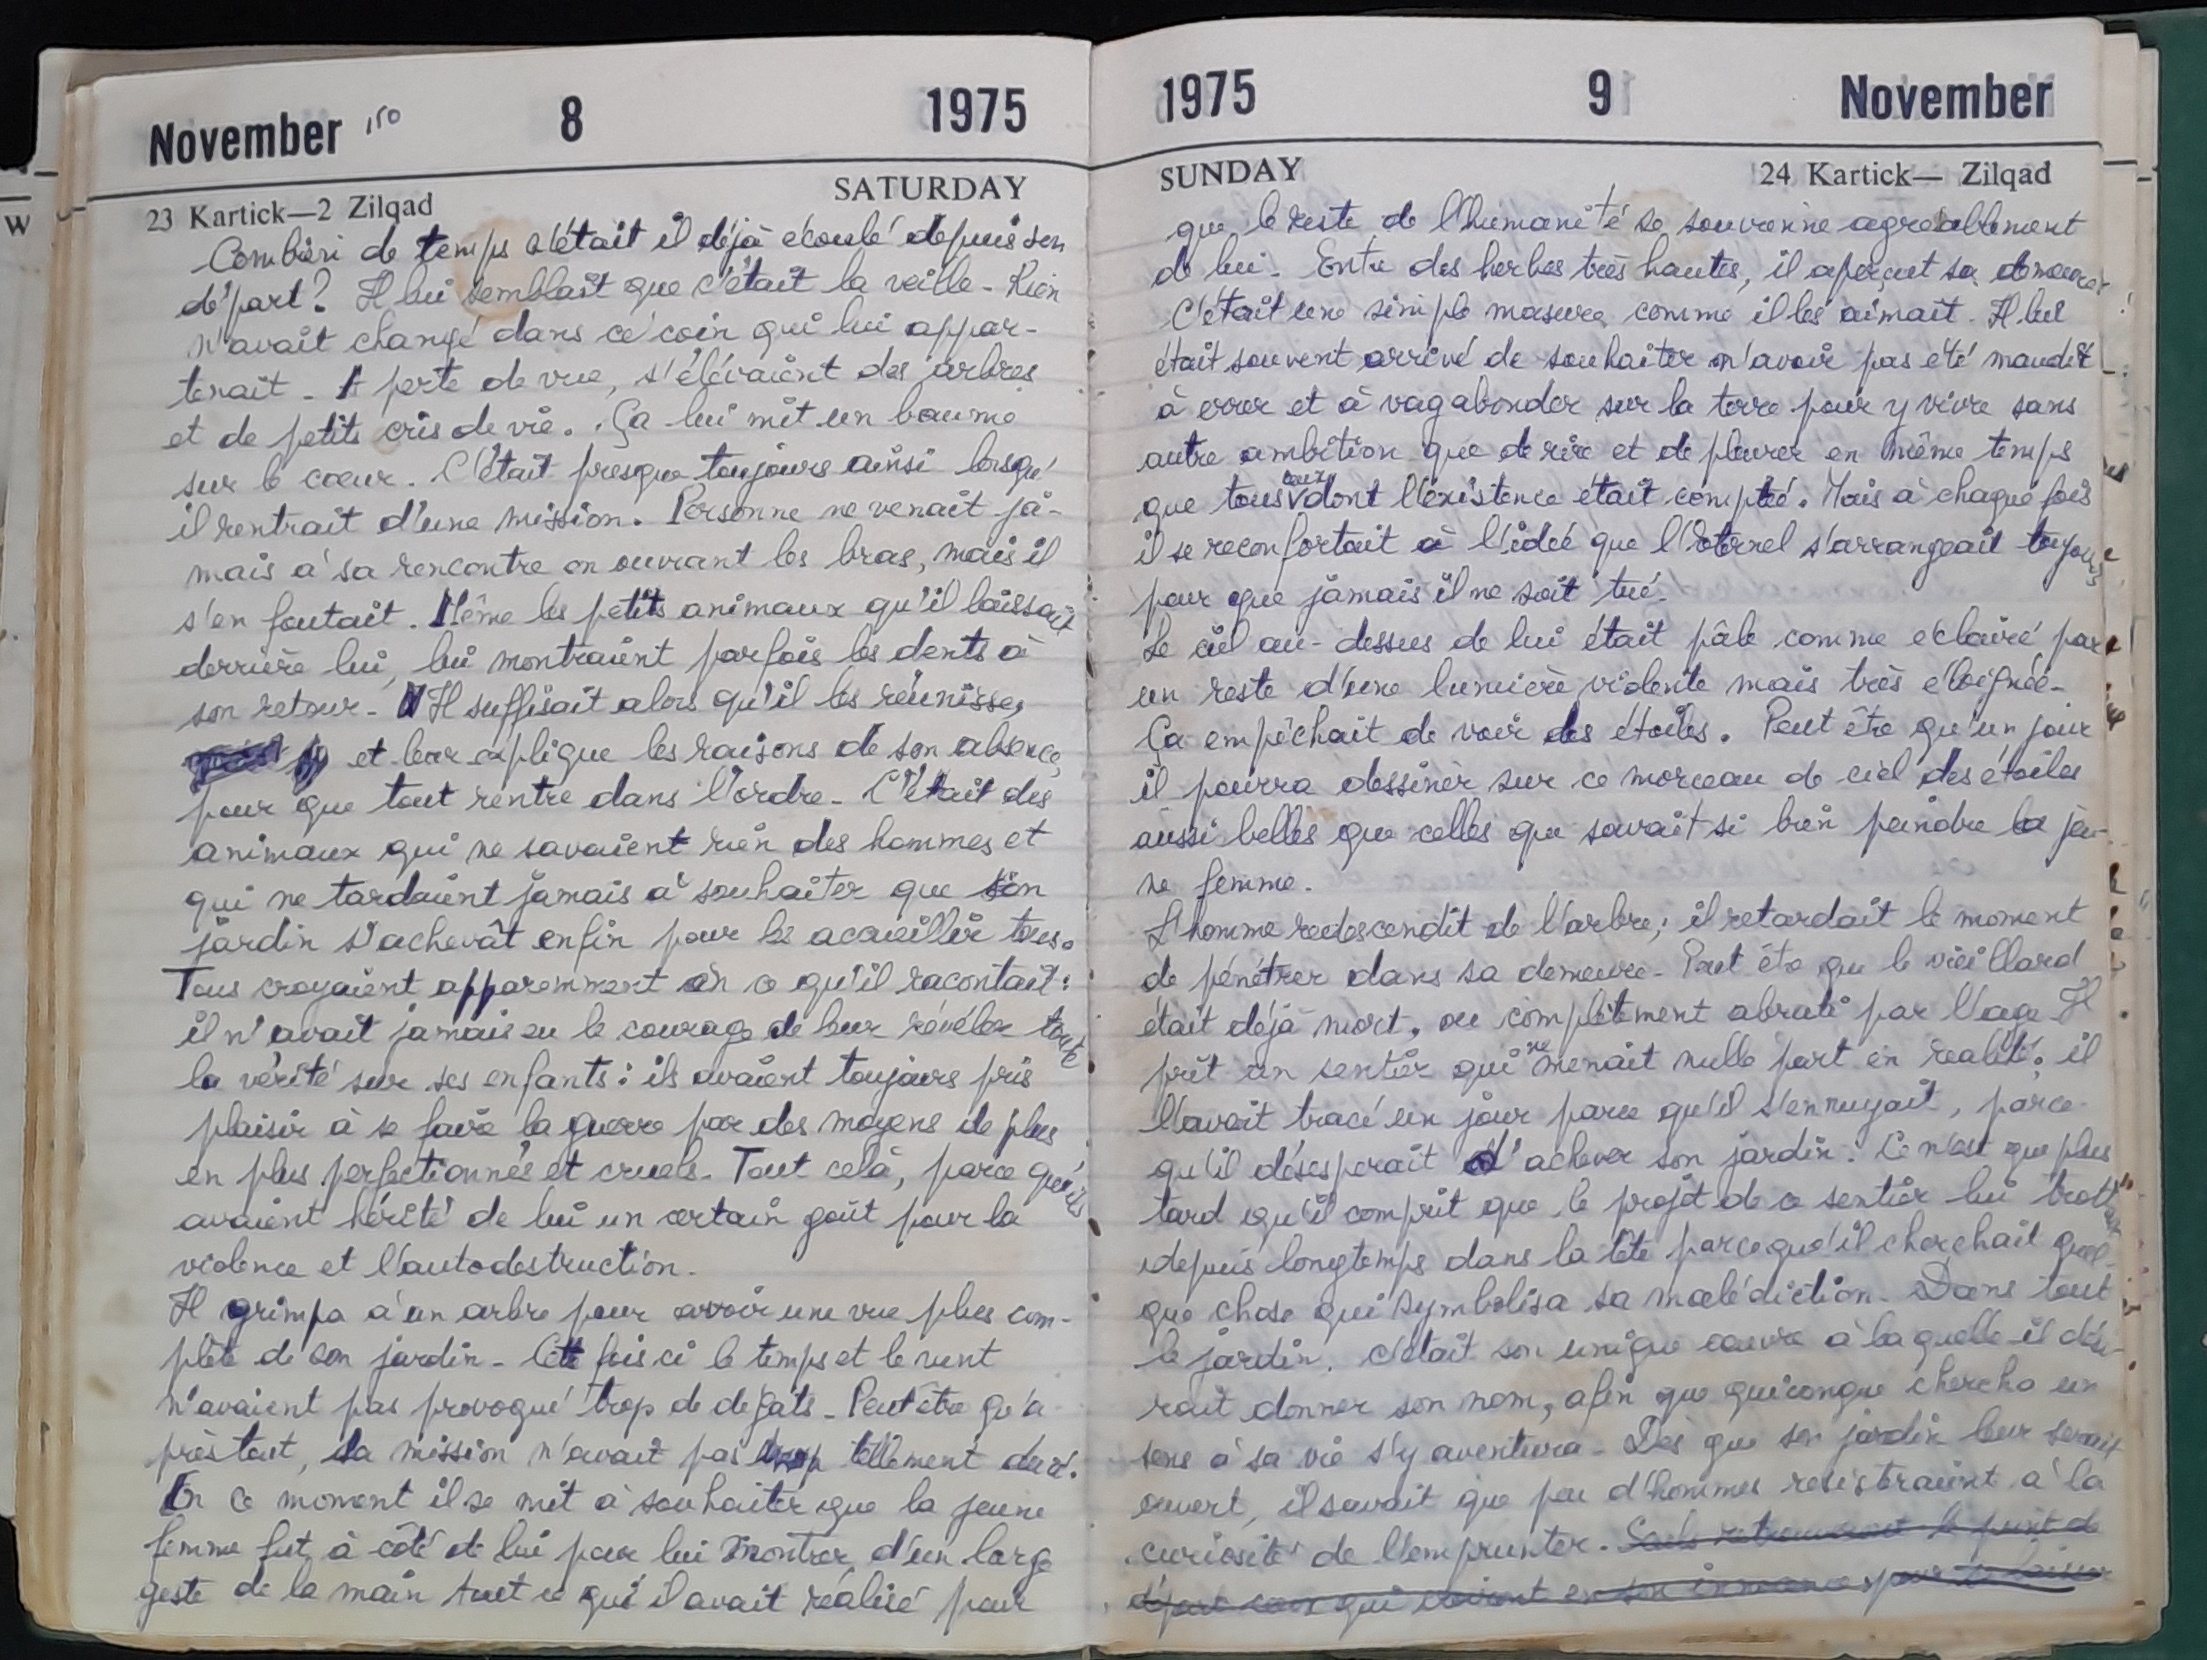 November 150 8 1975
23 Kartick—2 Zilqad SATURDAY
Combien de temps s'était il déjà écoulé depuis son
départ? Il lui semblait que c'était la veille - Rien
n'avait changé dans ce coin qui lui appar-
tenait - A perte de vue, s'élévaient des arbres
et de petits cris de vie. Ça lui mit un baume
sur le coeur. C'était presque toujours ainsi lorsqu'
il rentrait d'une mission. Personne ne venait ja-
mais à sa rencontre en ouvrant les bras, mais il
s'en foutait. Même les petits animaux qu'il laissait
derrière lui, lui montraient parfois les dents à
son retour - Il suffisait alors qu'il les réunisse,
et leur explique les raisons de son absence,
pour que tout rentre dans l'ordre - C'était des
animaux qui ne savaient rien des hommes et
qui ne tardaient jamais à souhaiter que son
jardin s'achevât enfin pour les accueillir tous.
Tous croyaient apparemment en ce qu'il racontait :
il n'avait jamais eu le courage de leur révéler toute
la vérité sur ses enfants : ils avaient toujours pris
plaisir à se faire la guerre par des moyens de plus
en plus perfectionnés et cruels - Tout celà, parce qu'ils
avaient hérité de lui un certain goût pour la
violence et l'autodestruction.
Il grimpa à un arbre pour avoir une vue plus com-
plète de son jardin - Cette fois ci le temps et le vent
n'avaient pas provoqué trop de dégats - Peut être qu'a-
près tout, sa mission n'avait pas trop tellement duré.
En ce moment il se mit à souhaiter que la jeune
femme fut à côté de lui pour lui montrer d'un large
geste de la main tout ce qu'il avait réalisé pour
1975 9 November
SUNDAY 24 Kartick— Zilqad
que le reste de l'humanité se souvienne agréablement
de lui - Entre des herbes très hautes, il aperçut sa demeure
C'était une simple masure comme il les aimait. Il lui
était souvent arrivé de souhaiter n'avoir pas été maudit
à errer et à vagabonder sur la terre pour y vivre sans
autre ambition que de rire et de pleurer en même temps
que tous ceux dont l'existence était comptée. Mais à chaque fois
il se reconfortait à l'idée que l'Eternel s'arrangeait toujours
pour que jamais il ne soit tué.
Le ciel au-dessus de lui était pâle comme éclairé par
un reste d'une lumière violente mais très éloignée -
Ça empêchait de voir des étoiles. Peut être qu'un jour
il pourra dessiner sur ce morceau de ciel des étoiles
aussi belles que celles que savait si bien peindre la jeu-
ne femme.
L'homme redescendit de l'arbre ; il retardait le moment
de pénétrer dans sa demeure - Peut être que le vieillard
était déjà mort, ou complètement abruti par l'age - Il
prit un sentier qui ne menait nulle part en realité ; il
l'avait tracé un jour parce qu'il s'ennuyait, parce
qu'il désesperait d'achever son jardin. Ce n'est que plus
tard qu'il comprit que le projet de ce sentier lui trottait
depuis longtemps dans la tête parce qu'il cherchait quel-
que chose qui symbolisa sa malédiction - Dans tout
le jardin, c'était son unique oeuvre à laquelle il dési-
rait donner son nom, afin que quiconque chercha un
sens à sa vie s'y aventura - Dès que son jardin leur serait
ouvert, il savait que peu d'hommes resisteraient à la
curiosité de l'emprunter. Seuls retrouveront le point de
départ ceux qui